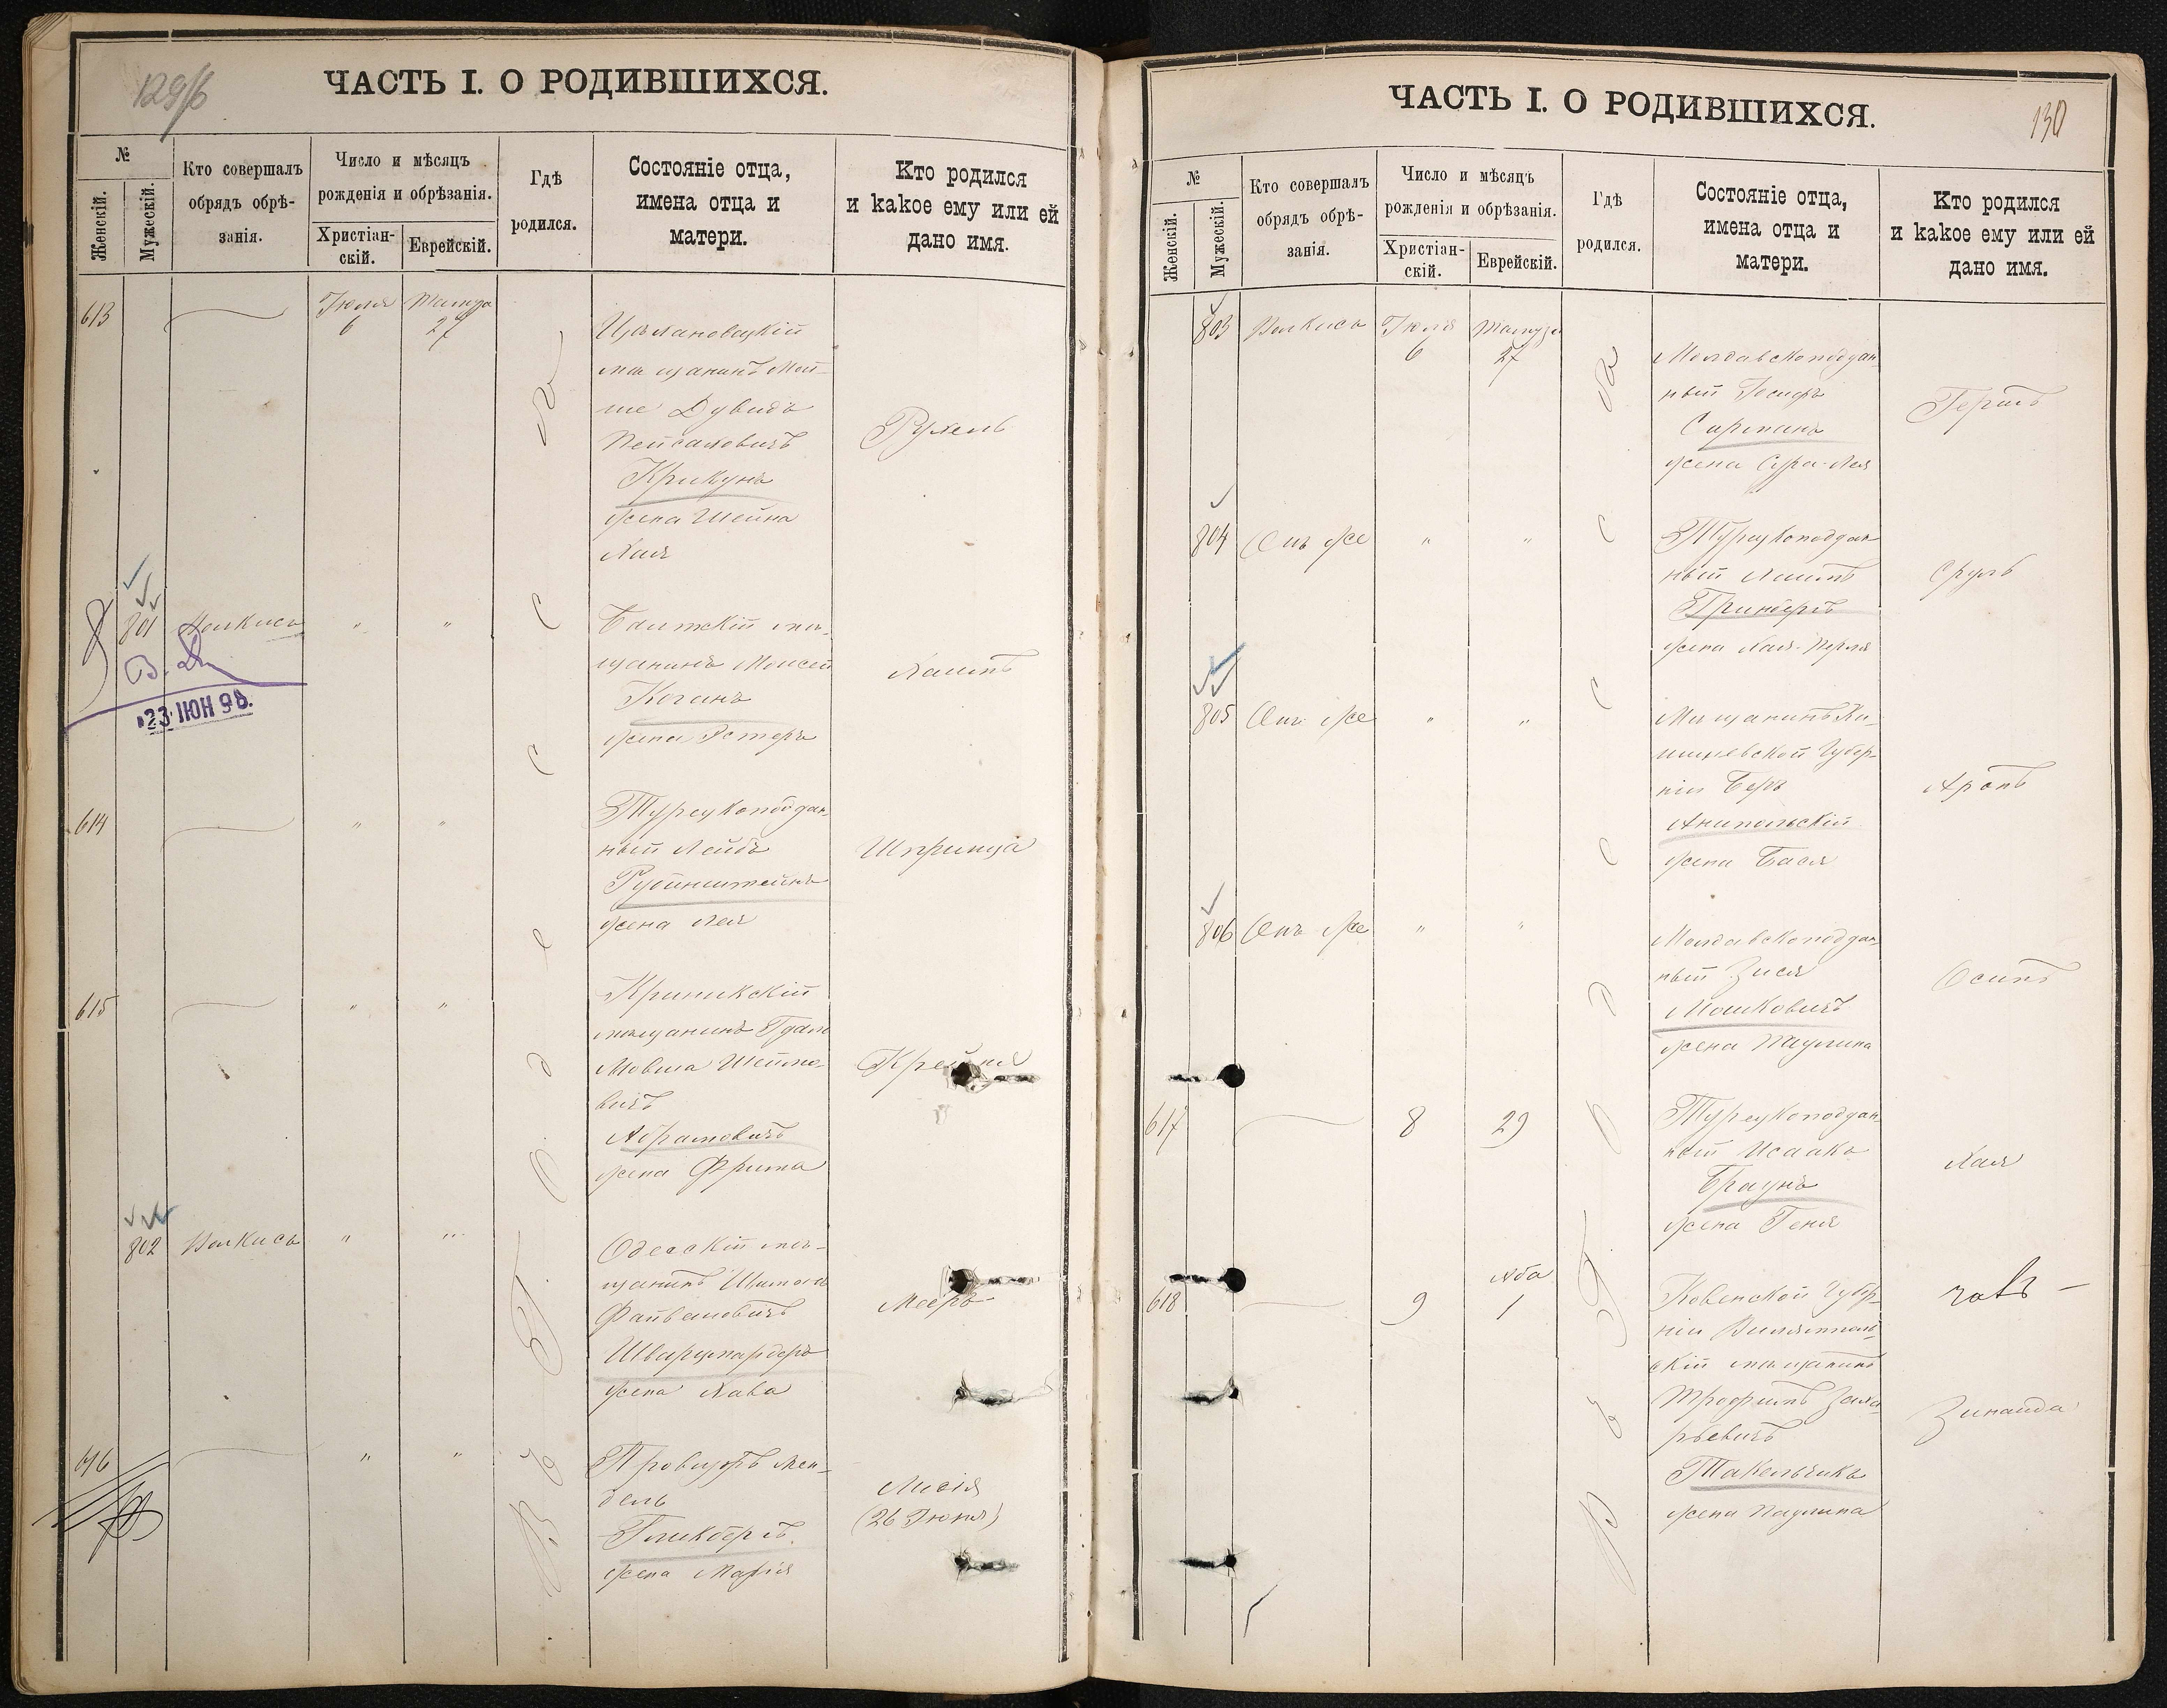 129/б
ЧАСТЬ I. О РОДИВШИХСЯ.
№
Женскій.
Мужескій.
Кто совершалъ
обрядъ обрѣ-
занія.
Число и мѣсяцъ
рожденія и обрѣзанія.
Христіан-
скій.
Еврейскій.
Гдѣ
родился.
Состояніе отца,
имена отца и
матери.
Кто родился
и какое ему или ей
дано имя.
Въ г. Одессѣ
613 Іюля 6 Тамуза 27
мѣщанинъ Мой-
ше Дувидъ
Пейсаховичъ
Крикунъ
жена Шейна
Хая
Рухель
801 Волкисъ " "
Балтскій мѣ-
щанинъ Моисей
Коганъ
жена Эстеръ
Хаимъ
23 ІЮН 98.
614 " "
Турецкоподдан-
ный Лейба
Рубинштейнъ
жена Лея
Шпринца
615 " "
мѣщанинъ
Мовша
вичъ
Абрамовичъ
жена Фрима
Крейня
802 Волкисъ " "
Одесскій мѣ-
щанинъ Шимонъ
Файвелевичъ
жена Хава
Мееръ
616 " "
Провизоръ Мен-
дель
Гликбергъ
жена Марія
(26 Іюня)
130
ЧАСТЬ I. О РОДИВШИХСЯ.
№
Женскій.
Мужескій.
Кто совершалъ
обрядъ обрѣ-
занія.
Число и мѣсяцъ
рожденія и обрѣзанія.
Христіан-
скій.
Еврейскій.
Гдѣ
родился.
Состояніе отца,
имена отца и
матери.
Кто родился
и какое ему или ей
дано имя.
Въ г. Одессѣ
803 Волкисъ Іюля 6 Тамуза 27
Молдавскоподдан-
ный Іосифъ
жена Сура-Лея
Гершъ
804 Онъ же " "
Турецкоподдан-
ный Хаимъ
Гринбергъ
жена Хая-Перля
Сруль
805 Онъ же " "
Мѣщанинъ Ки-
шиневской Губер-
ніи Беръ
Анипольскій
жена Бася
Аронъ
806 Онъ же " "
Молдавскоподдан-
ный Зися
Мошковичъ
жена Паулина
Осипъ
617 8 29
Турецкоподдан-
ный Исаакъ
Браунъ
жена Геня
Хая
618 9 Аба 1
Ковенской Губер-
ніи
скій мѣщанинъ
Трофимъ Заха-
рьевичъ
Такельчикъ
жена Паулина
Зинаида